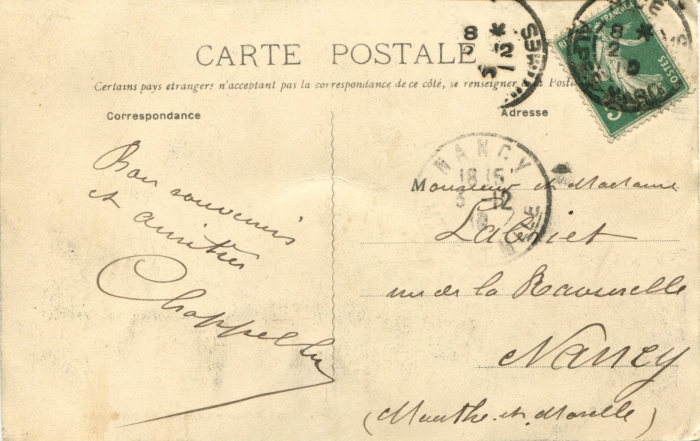 CARTE POSTALE
Certains pays étrangers n'acceptant pas la correspondance de ce côté, se renseigner à la Poste
Correspondance
Adresse
Bon souvenirs
et amitiés
Chappelle
8 *
2 12
8 *
12
10
POSTES
NANCY
18 15
5 12
Monsieur et Madame
Labriet
rue de la Ravinelle
Nancy
(Meurthe-et-Moselle)